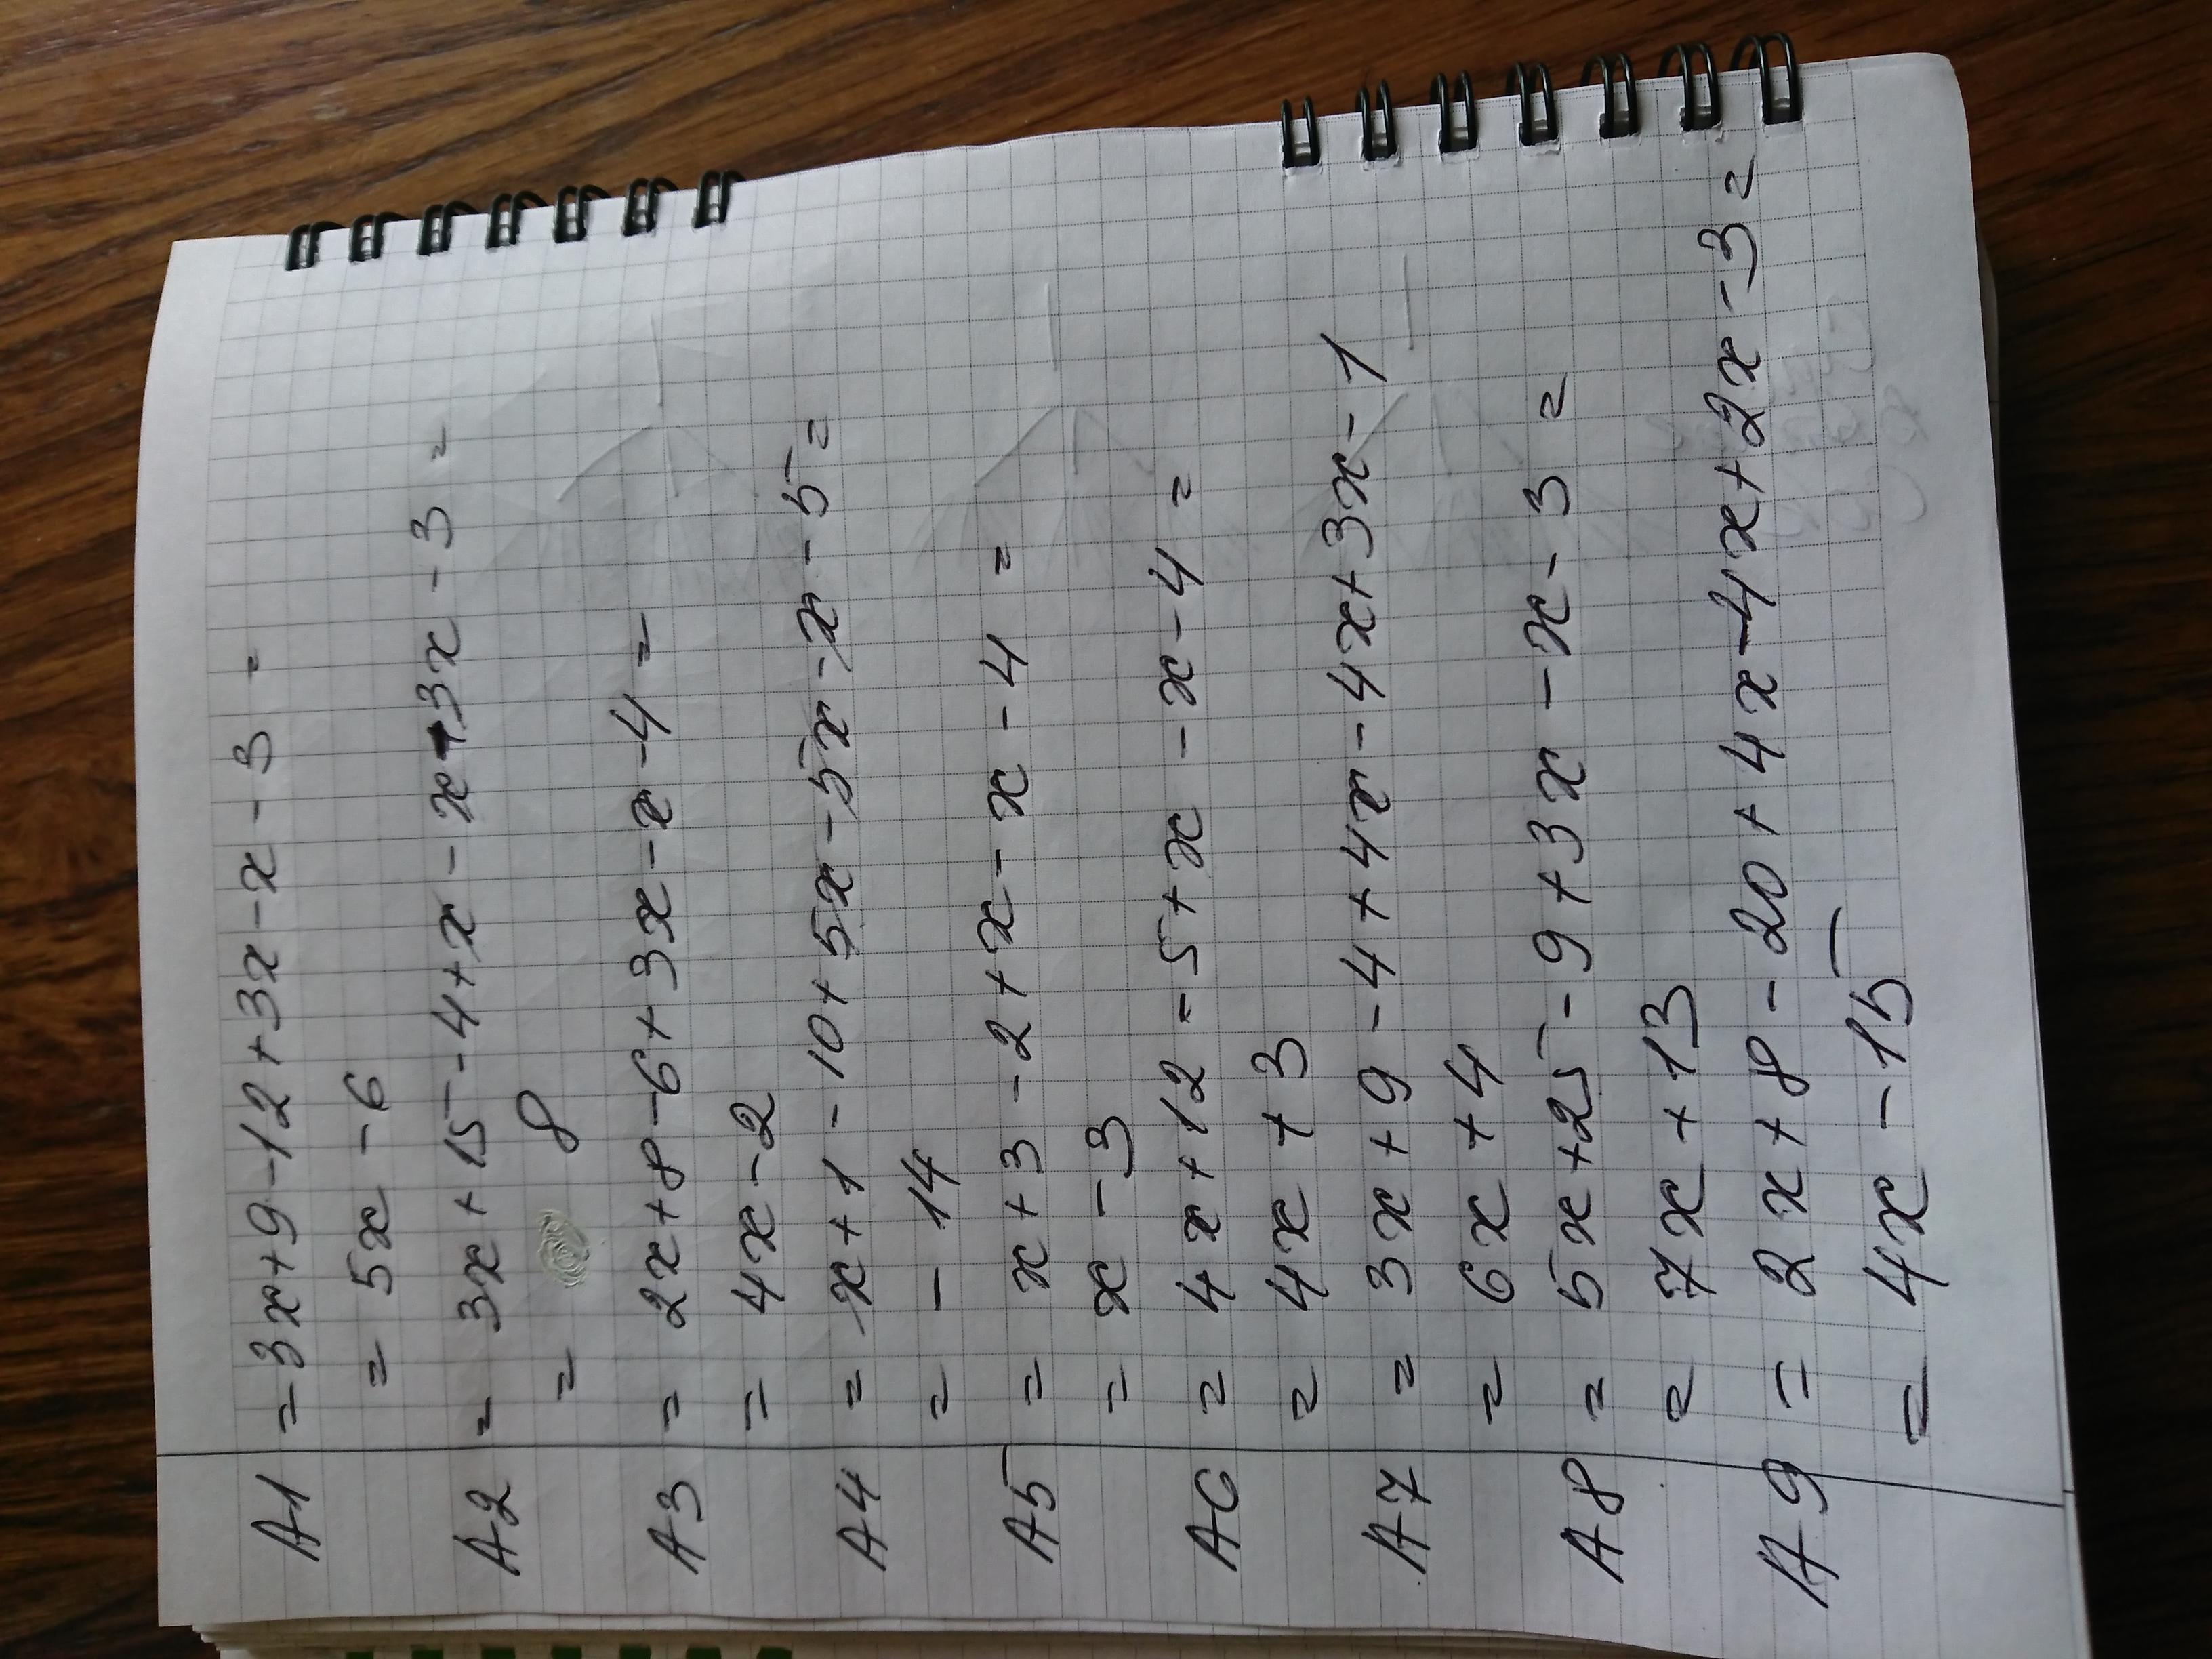 A1 = 3x+9-12+3x-x-3 =
= 5x-6
A2 = 3x+15-4+x-x-3x-3 =
= 8
A3 = 2x+8-6+3x-x-4 =
= 4x-2
A4 = x+1-10+5x-5x-x-5 =
= -14
A5 = x+3-2+x-x-4 =
= x-3
A6 = 4x+12-5+x-x-4 =
= 4x+3
A7 = 3x+9-4+4x-4x+3x-1
= 6x+4
A8 = 5x+25-9+3x-x-3 =
= 7x+13
A9 = 2x+8-20+4x-4x+2x-3 =
= 4x-15